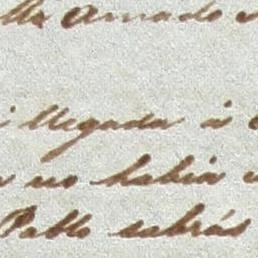 Amado
llegada á
no habia
Pablo sabrás